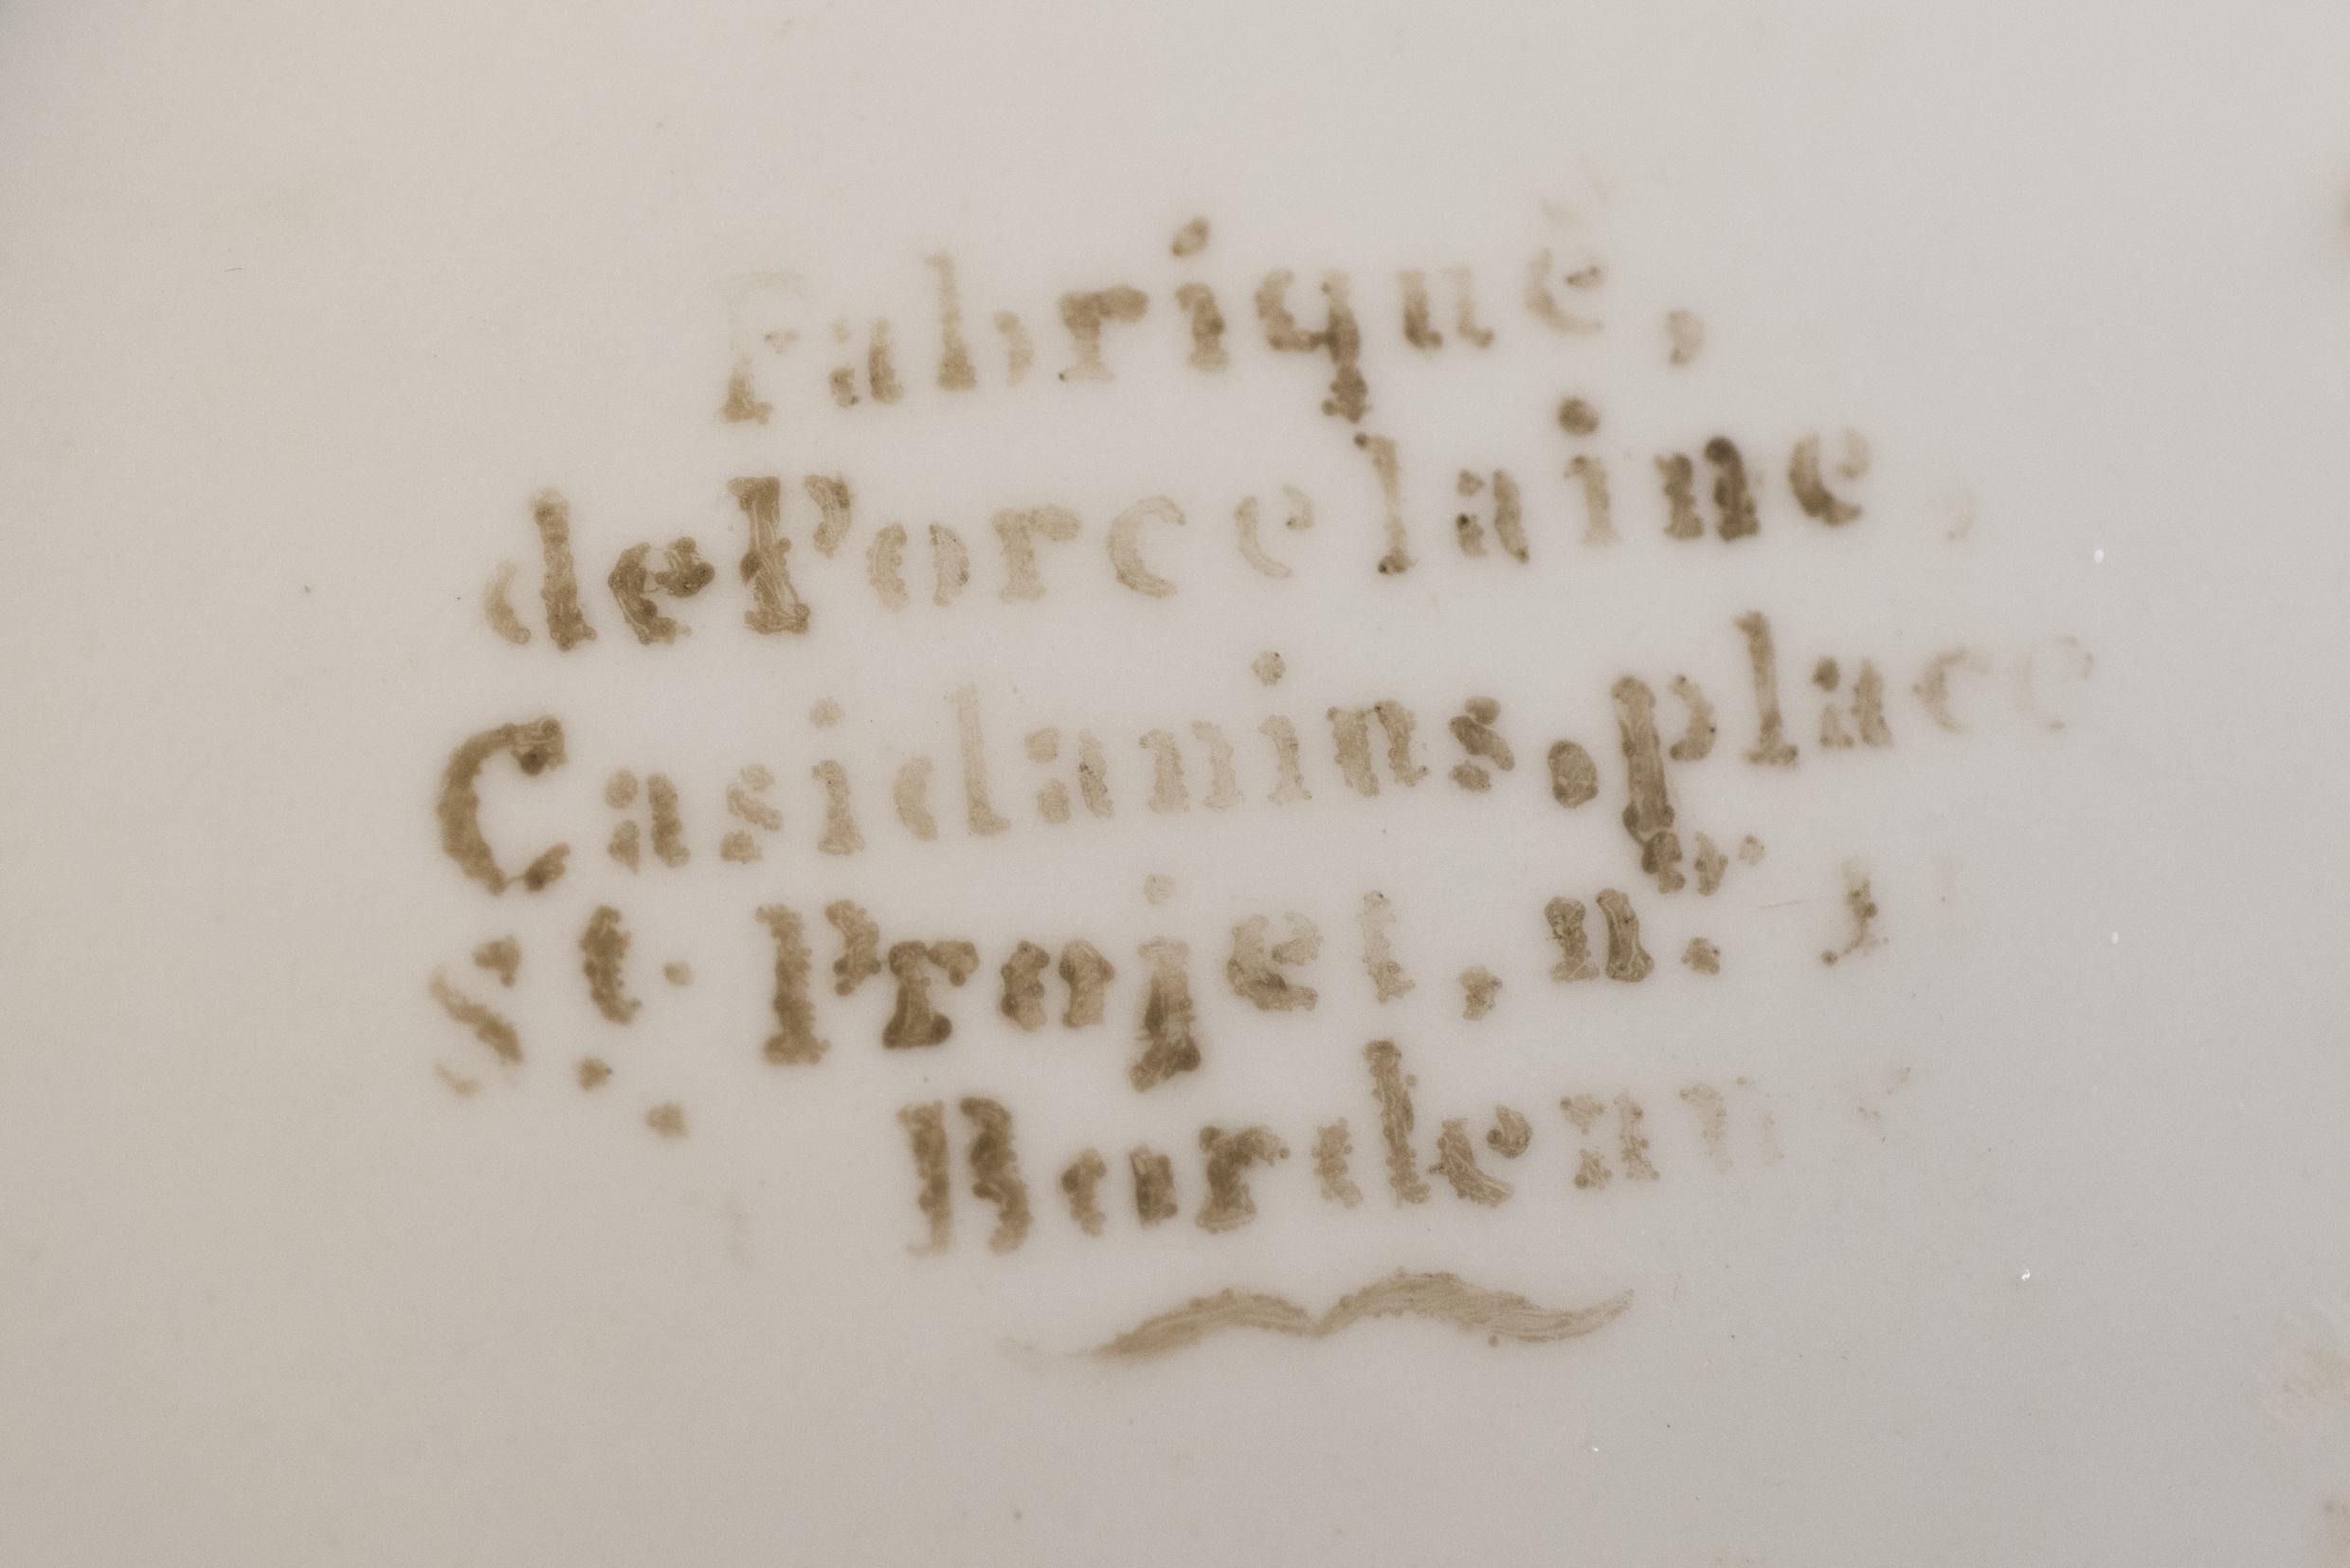 Fabrique,
de Porcelaine,
Casidanins, place
St. Projet, n.º 1
Bordeaux